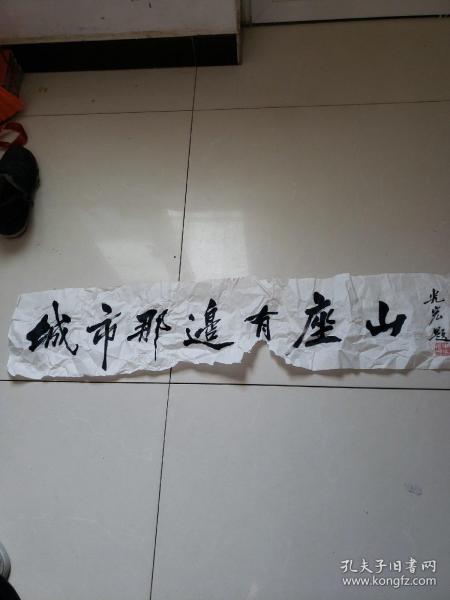 城市那邊有座山
光宏題
孔夫子旧书网
www.kongfz.com